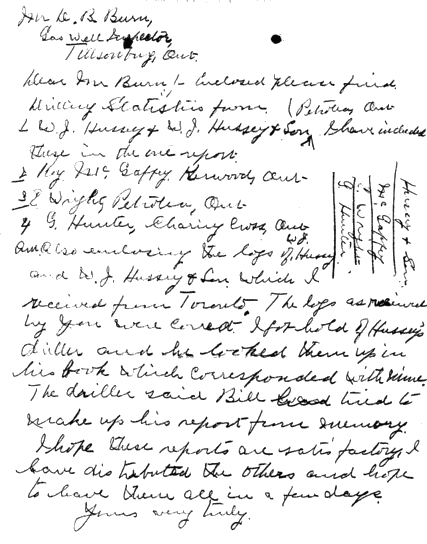 Mr D. B. Burn,
Gas Well Inspector,
Tillsonburg, Ont.
Dear Mr Burn:- Enclosed please find
Drilling Statistics from. (Petrolea Ont
1 W. J. Hussey & W. J. Hussey & Son, I have included
these in the one report.
2 Roy McGaffy Kerwood, Ont
3 E Wright, Petrolea, Ont
4 G. Hunter, Charing Cross, Ont
am also enclosing the logs of W.J. Hussey
and W. J. Hussey & Son. which I
received from Toronto. The logs as received
by you were correct. I got hold of Hussey's
driller and he looked them up in
his book which corresponded with mine.
The driller said Bill tried to
make up his report from memory.
I hope these reports are satisfactory, I
have distributed the others and hope
to have them all in a few days.
Yours very truly.
Hussey & Son.
McGaffy
Wright
G. Hunter.